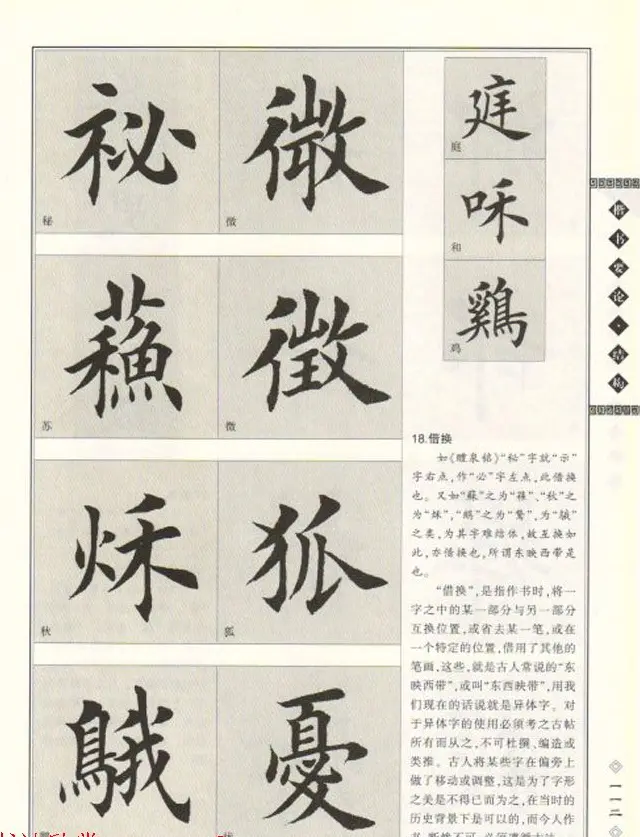 祕 微
秘 微
蘓 徵
苏
秌 狐
秋 狐
憂
庭
庭
咊
和
鷄
鸡
18.借换
如《醴泉铭》“秘”字就“示”
字右点,作“必”字左点,此借换
也。又如“蘇”之为“蘓”、“秋”之
为“秌”,“鹅”之为“鵞”,为“䳗”
之类,为其字难结体,故互换如
此,亦借换也,所谓东映西带是
也。
“借换”,是指作书时,将一
字之中的某一部分与另一部分
互换位置,或省去某一笔,或在
一个特定的位置,借用了其他的
笔画,这些,就是古人常说的“东
映西带”,或叫“东西映带”,用我
们现在的话说就是异体字。对
于异体字的使用必须考之古帖
所有而从之,不可杜撰、编造或
类推。古人将某些字在偏旁上
做了移动或调整,这是为了字形
之美是不得已而为之,在当时的
历史背景下是可以的,而今人作
楷书要论·结构
一一二